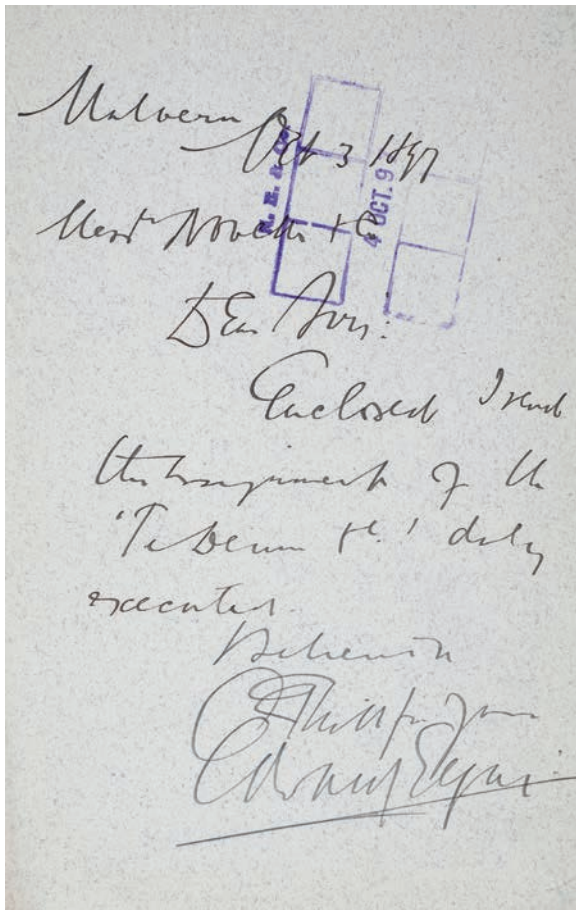 Malvern Oct 3 1897
N. E. & Co.
4 OCT. 9
Messrs Novello & Co
Dear Sirs:
Enclosed I send
the assignment of the
'Te Deum &c.' duly
executed.
Believe me
Faithfully yours
Edward Elgar